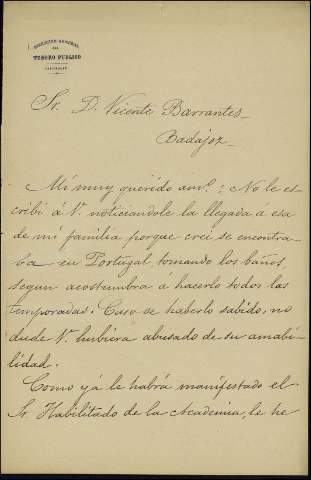 DIRECCIÓN GENERAL
DEL
TESORO PÚBLICO
Sr. D. Vicente Barrantes
Badajoz
Mi muy querido am.º: No le es-
cribi á V. noticiandole la llegada á esa
de mi familia porque crei se encontra-
ba en Portugal, tomando los baños,
segun acostumbra á hacerlo todos las
temporadas. Caso de haberlo sabido, no
dude V. hubiera abusado de su amabi-
lidad.
Como yá le habrá manifestado el
Sr. Habilitado de la Academia, le he